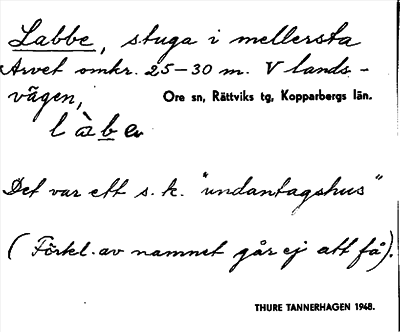 Labbe, stuga i mellersta
Arvet omkr. 25–30 m. V lands-
vägen, Ore sn, Rättviks tg, Kopparbergs län.
làbe
Det var ett s. k. "undantagshus"
(Förkl. av namnet går ej att få).
THURE TANNERHAGEN 1948.